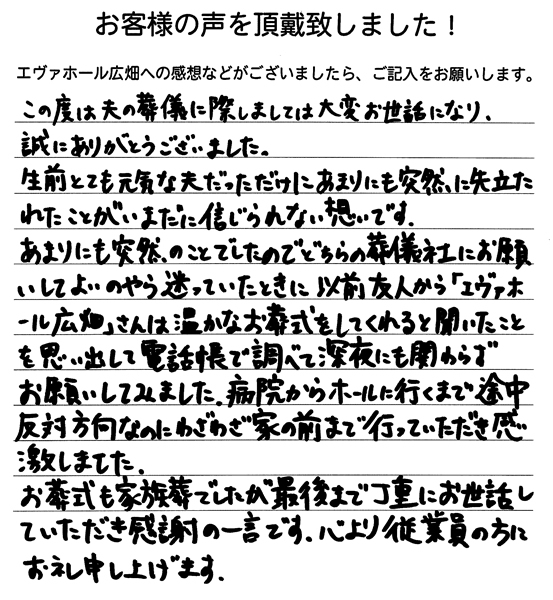 お客様の声を頂戴致しました！
エヴァホール広畑への感想などがございましたら、ご記入をお願いします。
この度は夫の葬儀に際しましては大変お世話になり、
誠にありがとうございました。
生前とても元気な夫だっただけにあまりにも突然に先立た
れたことがいまだに信じられない想いです。
あまりにも突然のことでしたのでどちらの葬儀社にお願
いしてよいのやら迷っていたときに以前友人から「エヴァホ
ール広畑」さんは温かなお葬式をしてくれると聞いたこと
を思い出して電話帳で調べて深夜にも関わらず
お願いしてみました。病院からホールに行くまで途中
反対方向なのにわざわざ家の前まで行っていただき感
激しました。
お葬式も家族葬でしたが最後まで丁重にお世話し
ていただき感謝の一言です。心より従業員の方に
お礼申し上げます。